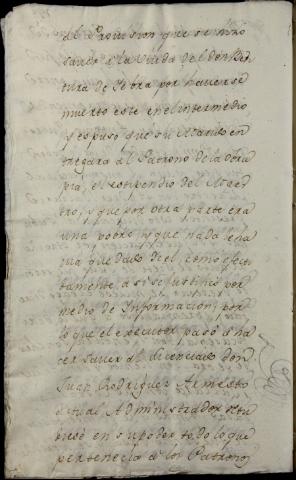 al Provision que se hizo
saver a la Viuda del don
tura de Sebra por haverse
muerto este en el intermedio
y espuso que su Marido en
tregara al Patrono de la obra
pia, el estipendio del Maes
tro, y que por otra parte era
una pobre y que nada le ha
via quedado de el, como efec
tibamente asi se justifico por
medio de Informacion, por
lo que el executor pasó a ha
cer saver al Licenciado don
Juan Rodriguez Armesto
actual Administrador retu
biese en su poder todo lo que
pertenecia a los Patronos